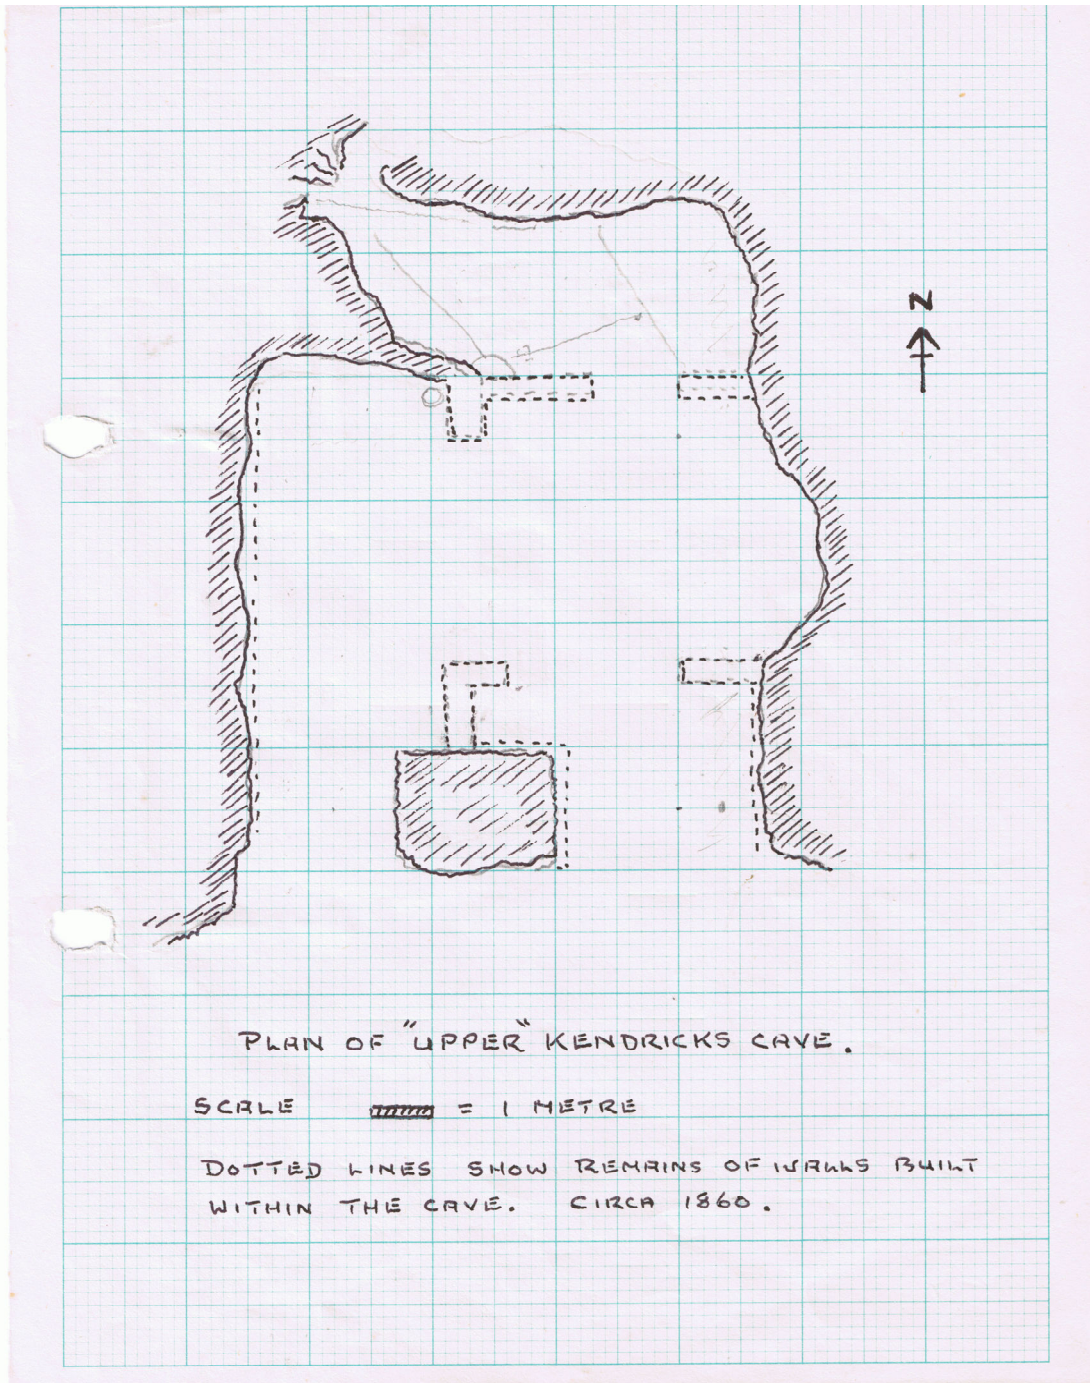 N
PLAN OF "UPPER" KENDRICKS CAVE.
SCALE = 1 METRE
DOTTED LINES SHOW REMAINS OF WALLS BUILT
WITHIN THE CAVE. CIRCA 1860.